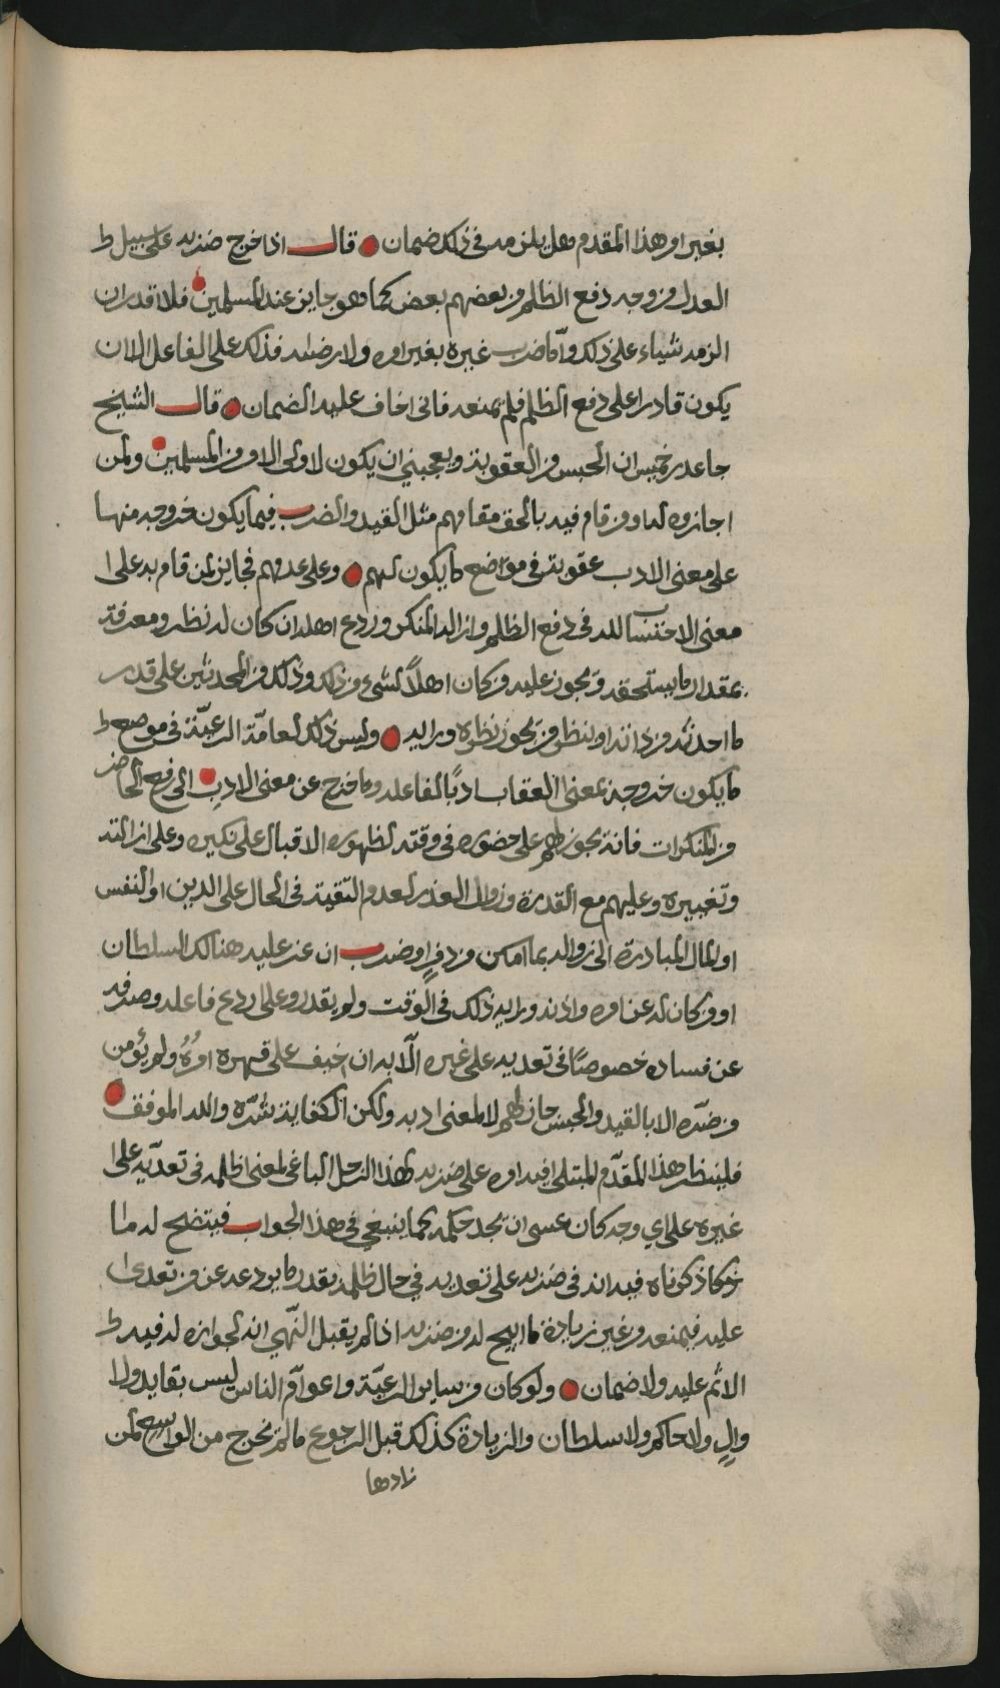 بغير امر هذا المقدم وهل يلزمه في ذلك ضمان قال اذا خرج ضربه على سبيل
العدل من وجه دفع الظلم من بعضهم بعض كما وهو جايز عند المسلمين فلا اقدر ان
الزمه شياء على ذلك وأما ضرب غيره بغير امره ولا رضاه فذلك على الفاعل الا ان
يكون قادرا على دفع الظلم فلم يمنعه فاني اخاف عليه الضمان قال الشيخ
جاعد بن خميس ان الحبس من العقوبة ويعجبني ان يكون لاولى الامر من المسلمين ولمن
اجازوه له او من قام فيه بالحق مقامهم مثل القيد والضرب فيما يكون خروجه منها
على معنى الادب عقوبة في مواضع ما يكون لهم وعلى عدمهم فجايز لمن قام به على
معنى الاحتساب لله في دفع الظلم وازالة المنكر وردع اهله ان كان له نظر ومعرفة
بمقدار ما يستحقه ويجوز عليه من كان اهلاً لشيء من ذلك وذلك من المحدثين على قدر
ما احدثه من ذاته او بنظر من يجوز نظره ورايه وليس ذلك لعامّة الرعيّة في موضع
ما يكون خروجه بمعنى العقاب ادبًا لفاعله وما خرج عن معنى الادب الى رفع الحاضر
من المنكرات فانه يجوز لهم على حضوره في وقته لظهوره الاقبال على نكيره وعلى ازالته
وتغييره وعليهم مع القدرة وزوال العذر لعدم التقية في الحال على الدين او النفس
او المال المبادرة الى زواله بما امكن من دفع او ضرب ان عز عليه هنالك السلطان
او من كان له عن امره واذنه ورايه ذلك في الوقت ولم يقدروا على ردع فاعله وصرفه
عن فساده خصوصًا في تعديه على غيره الّا به ان خيف على قهره امرُهُ ولم يُؤمن
من ضرّه الا بالقيد والحبس جاز لهم لا لمعنى ادبه ولكن الكفاية شرّه والله الموفق
فلينظر هذا المقدّم المبتلى فيه امره على ضربه لهذا الرجل الباغي لمعنى ظلمه في تعدّيه على
غيره على اي وجه كان عسى ان يجد حكمه كما ينبغي في هذا الجواب فيتضح له ما
ذكرناه فيه انه في ضربه على تعديه في حال ظلمه بقدر ما يردعه عن من تعدى
عليه فيمنعه من غير زيادة ما ابيح له من ضربه اذا لم يقبل النّهي انه لجوازه له فيه
لا اثم عليه ولا ضمان ولو كان من ساير الرعيّة واعوآم الناس ليس بقايد ولا
والٍ ولا حاكم ولا سلطان والزيادة كذلك قبل الرجوع ما لم يخرج من الواسع لمن
زادها